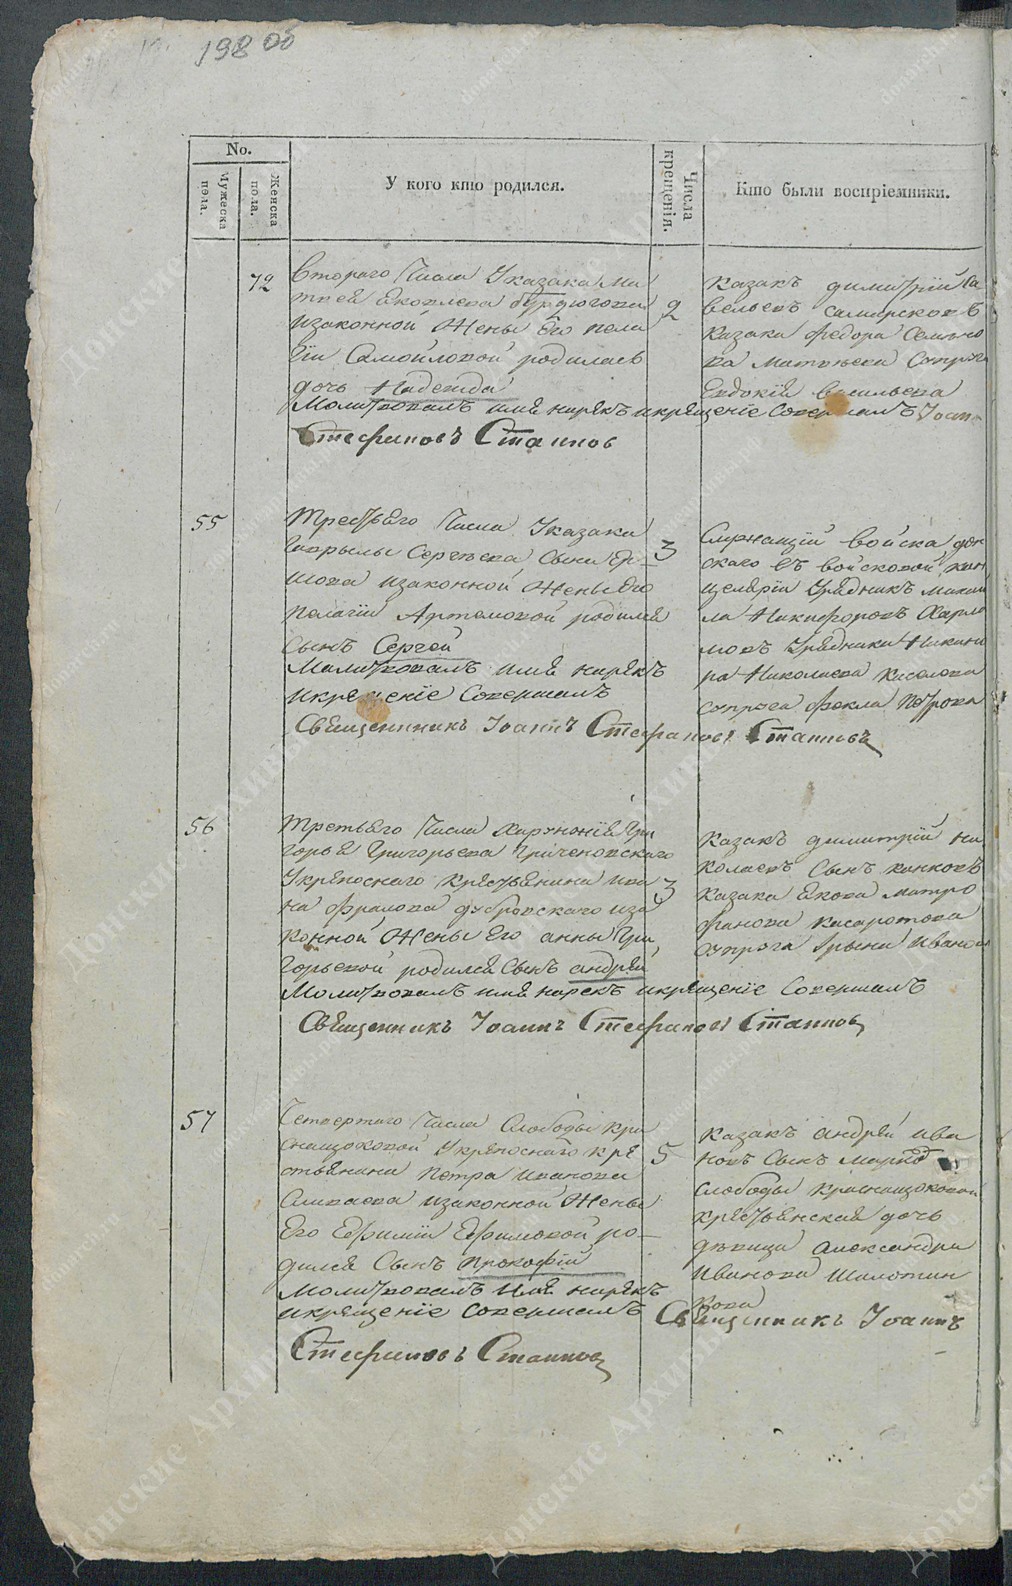 198 об
No.
Мужеска пола.
Женска пола.
У кого кто родился.
Числа крещенія.
Кто были воспріемники.
72
Втораго Числа Указака Ма
твея Яковлева Бурдюгова
изаконной Жены Его пела
гіи Самойловой родилась
дочь Надежда
2
Казакъ димитрій Са
вельевъ Самарсковъ
казака Федора Семъно
ва Матвъева Супруга
Евдокія Васильева
Молитвовалъ имя нарекъ икрещеніе Совершалъ Іоан
Стефановъ Стаиновъ
55
Третьяго Числа Указака
Гаврылы Сергъева Сына Ер
шова изаконной Жены Его
пелагіи Артемовой родился
Сынъ Сергей
3
Служащій войска дон
скаго въ войсковой кан
целяріи Урядникъ Михаи
ла Никифоровъ Харла
мовъ Урядника Никано
ра Николаева Киселева
супруга Фекла Петрова
Молитвовалъ имя нарекъ
икрещеніе Совершалъ
Священникъ Іоаннъ Стефановъ Стаиновъ
56
Третьяго Числа Харунжія Гри
горья Григорьева Гриченовскаго
Укрепоснаго крестьянина Ива
на Фралова дубровскаго иза
конной Жены Его анны Гри
горьевой родился Сынъ андрей
3
Казакъ димитрій Ни
колаевъ Сынъ
казака Якова Митро
фанова
Супруга Ирына Иванова
Молитвовалъ имя нарекъ икрещеніе Совершалъ
Священникъ Іоаннъ Стефановъ Стаиновъ
57
Четвертаго Числа Слободы Кра
снощоковой Укрепоснаго кре
стьянина Петра Иванова
изаконной Жены
Его Ефиміи Ефимовой ро
дился Сынъ прокофій
5
Казакъ андрей Ива
новъ Сынъ Марков
Слободы Краснощоковой
крестьянская дочь
дъвица александра
Иванова
Молитвовалъ имя нарекъ
икрещеніе совершалъ Священникъ Іоаннъ
Стефановъ Стаиновъ